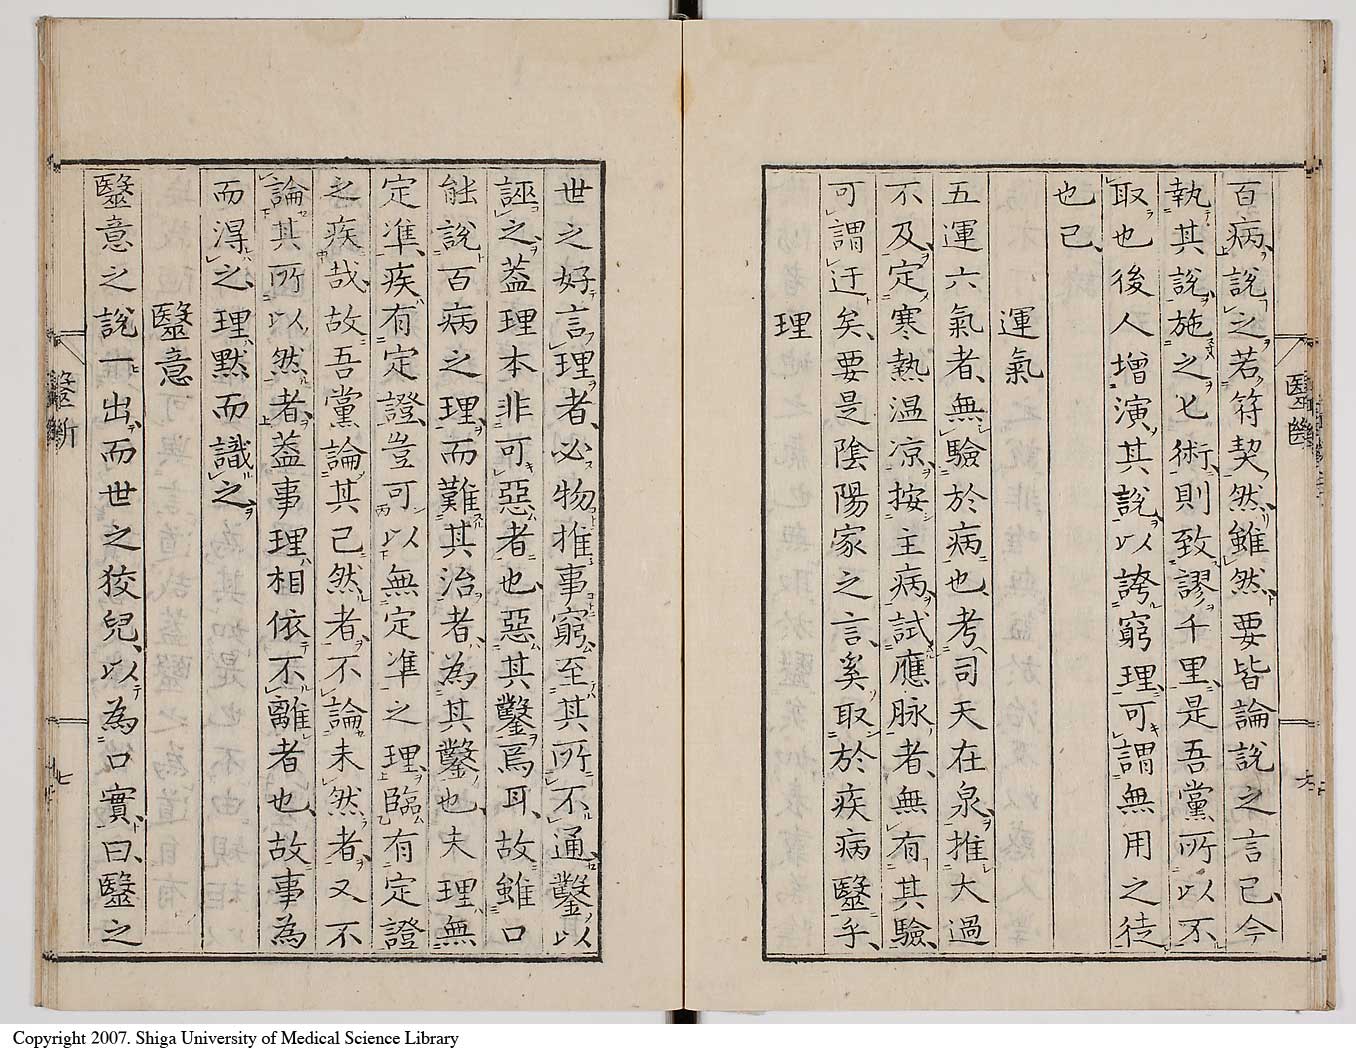 百病說之若符契然雖然要皆論說之言已今
執其說施之匕術則致謬千里是吾黨所以不
取也後人增演其說以誇窮理可謂無用之徒
也已
運氣
五運六氣者無驗於病也考司天在泉推大過
不及定寒熱溫凉按主病試應脉者無有其驗
可謂迂矣要是陰陽家之言奚取於疾病毉乎
理
世之好言理者必物推事窮至其所不通鑿以
誣之蓋理本非可惡者也惡其鑿焉耳故雖口
能說百病之理而難其治者為其鑿也夫理無
定準疾有定證豈可以無定準之理臨有定證
之疾哉故吾黨論其已然者不論未然者又不
論其所以然者蓋事理相依不離者也故事為
而得之理默而識之
毉意
毉意之說一出而世之狡兒以為口實曰毉之
毉斷
七
Copyright 2007. Shiga University of Medical Science Library